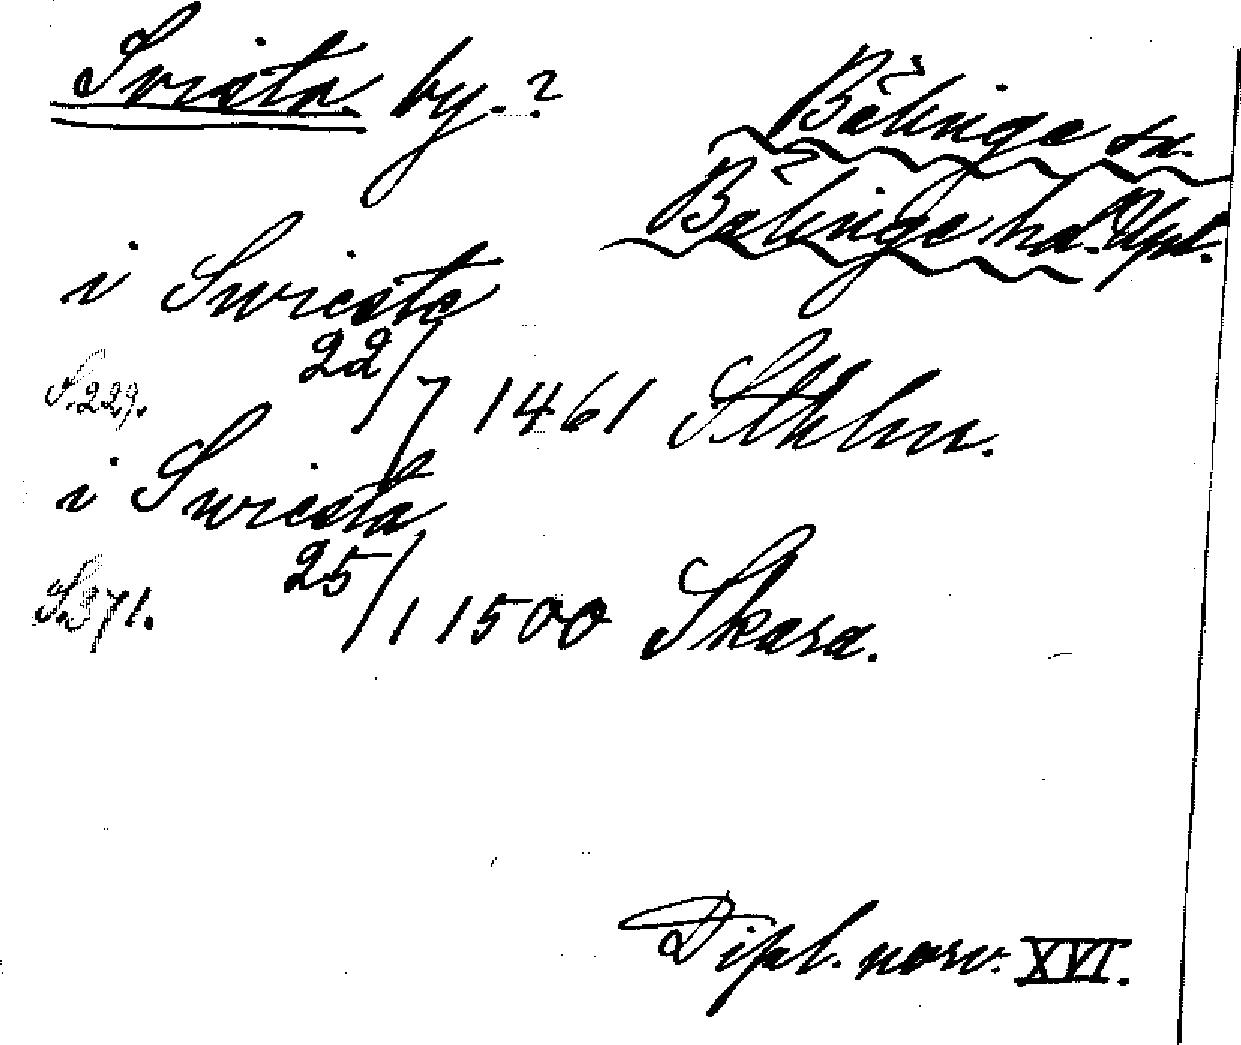 Svista by.?
Bälinge sn.
Bälinge hd. Upl.
i Swiesta
22/7 1461 Sthlm.
S.229.
i Swiesta
25/1 1500 Skara.
S.371.
Dipl. norv. XVI.